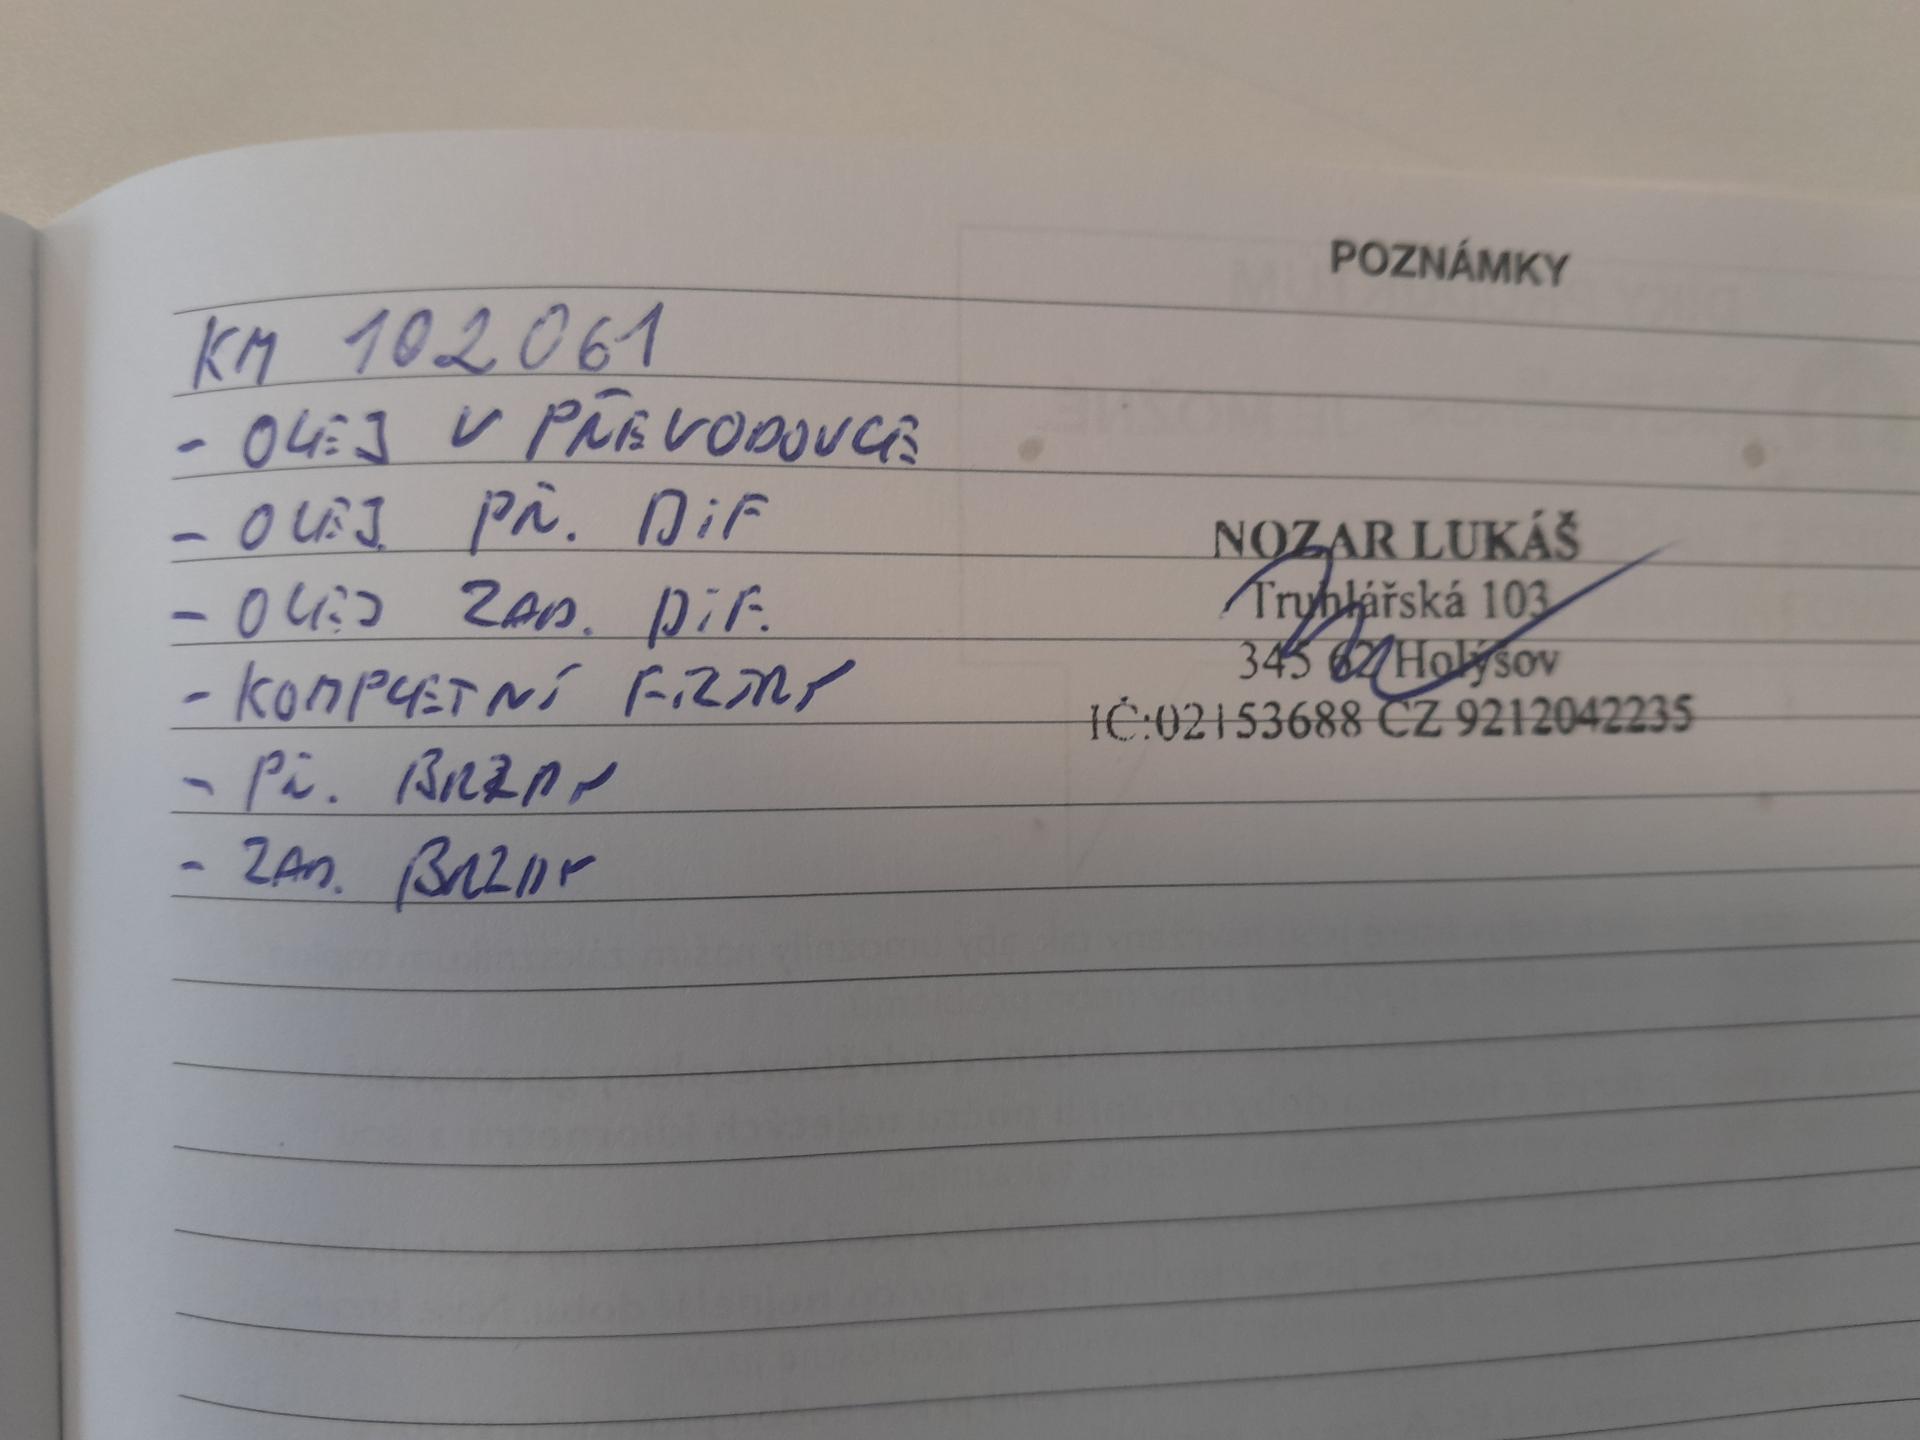 POZNÁMKY
KM 102 061
- OLEJ V PŘEVODOVCE
- OLEJ PŘ. DiF
- OLEJ ZAD. DiF.
- KOMPLETNÍ FiLTRY
- PŘ. BRZDY
- ZAD. BRZDY
NOZAR LUKÁŠ
Truhlářská 103
345 62 Holýšov
IČ:02153688 CZ 9212042235